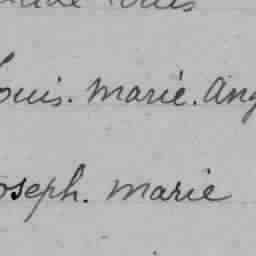 ouis. Marie. Ang
oseph. Marie